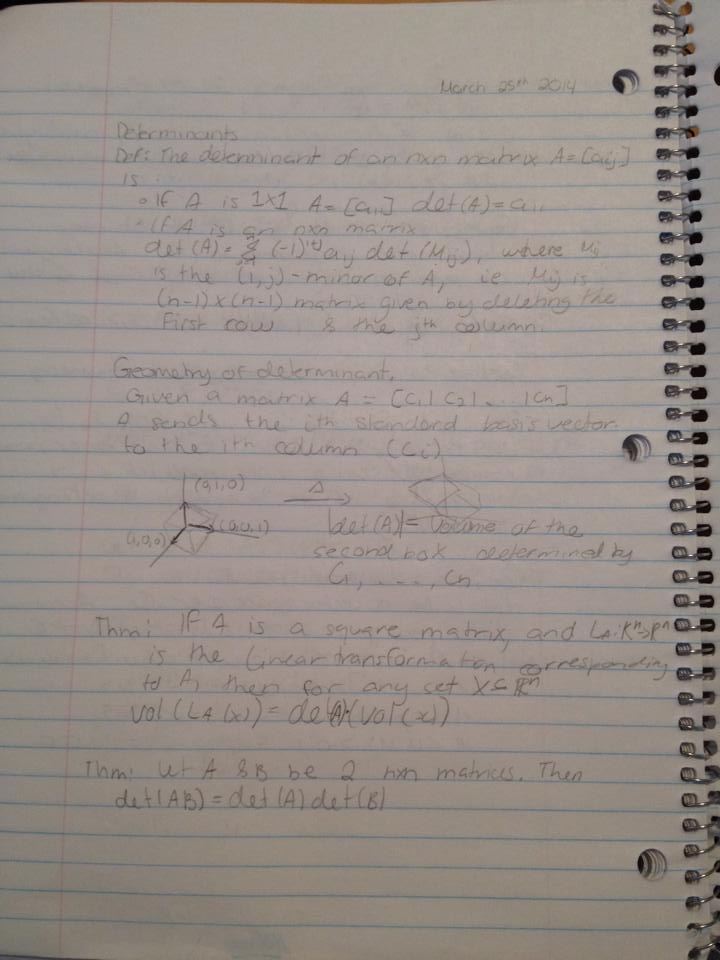 March 25th 2014
Determinants
Def: The determinant of an nxn matrix A = [aij]
is
• If A is 1x1 A = [a11] det(A) = a11
• If A is an nxn matrix
det(A) = Σ (-1)^(1+j) a1j det(M1j), where M1j
is the (1,j)-minor of A, ie M1j is
(n-1) x (n-1) matrix given by deleting the
First row & the jth column.
Geometry of determinant.
Given a matrix A = [C1 | C2 | ... | Cn]
A sends the ith standard basis vector
to the ith column (Ci)
(0,1,0)
A
(1,0,0)
(0,0,1)
|det(A)| = Volume of the
second box determined by
C1, ..., Cn
Thm: If A is a square matrix, and LA: Rn→Rn
is the linear transformation corresponding
to A, then for any set X ⊆ Rn
vol(LA(x)) = det(A)·(vol(x))
Thm: Let A & B be 2 nxn matrices. Then
det(AB) = det(A) det(B)